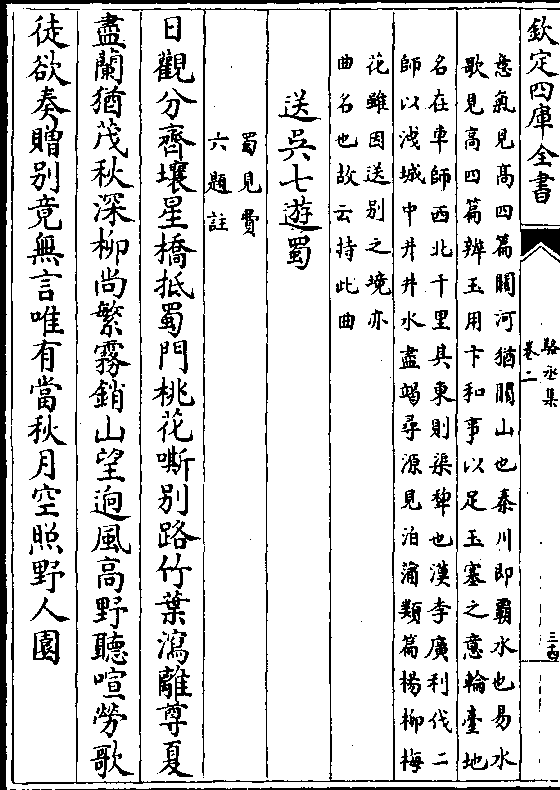 欽定四庫全書
駱丞集
卷二
三古
意氣見髙四篇關河猶關山也秦川即霸水也易水
歌見高四篇辨玉用卞和事以足玉塞之意輪臺地
名在車師西北千里其東則渠犂也漢李廣利伐二
師以淺城中井井水盡竭尋源見泊湽類篇楊柳梅
花雖因送别之境亦
曲名也故云持此曲
送吳七遊蜀
蜀見費
六題註
日觀分齊壤星橋抵蜀門桃花嘶别路竹葉瀉離尊夏
盡蘭猶茂秋深柳尚繁霧銷山望迥風高野聽喧勞歌
徒欲奏贈别竟無言唯有當秋月空照野人園